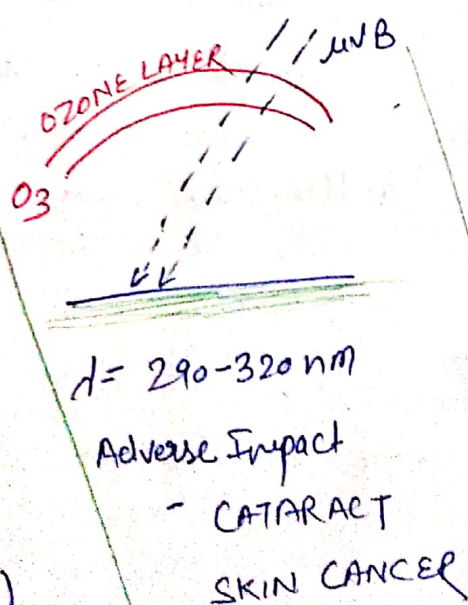 UVB
OZONE LAYER
O3
λ= 290-320 nm
Adverse Impact
- CATARACT
SKIN CANCER
)